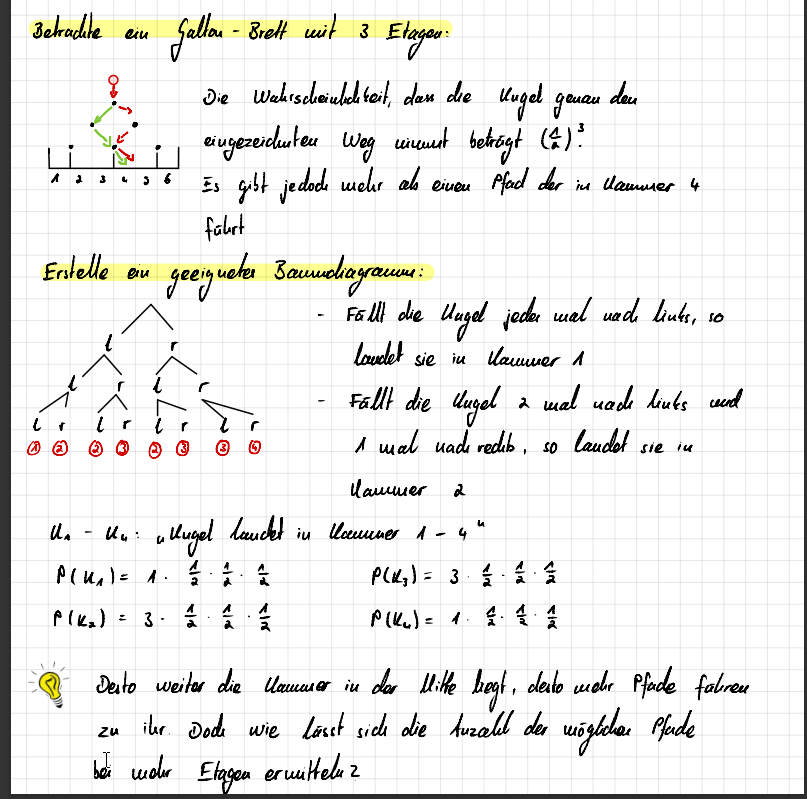 Betrachte ein Galton-Brett mit 3 Etagen:
Die Wahrscheinlichkeit, dass die Kugel genau den
eingezeichneten Weg nimmt beträgt (1/2)³.
1 2 3 4 5 6
Es gibt jedoch mehr als einen Pfad der in Kammer 4
führt
Erstelle ein geeignetes Baumdiagramm:
- Fällt die Kugel jedes mal nach links, so
landet sie in Kammer 1
- Fällt die Kugel 2 mal nach links und
1 mal nach rechts, so landet sie in
Kammer 2
l r
l r l r
l r l r l r l r
1 2 2 3 2 3 3 4
K₁ - K₄: „Kugel landet in Kammer 1 - 4"
P(K₁) = 1 · 1/2 · 1/2 · 1/2 P(K₃) = 3 · 1/2 · 1/2 · 1/2
P(K₂) = 3 · 1/2 · 1/2 · 1/2 P(K₄) = 1 · 1/2 · 1/2 · 1/2
Desto weiter die Kammer in der Mitte liegt, desto mehr Pfade führen
zu ihr. Doch wie lässt sich die Anzahl der möglichen Pfade
bei mehr Etagen ermitteln?